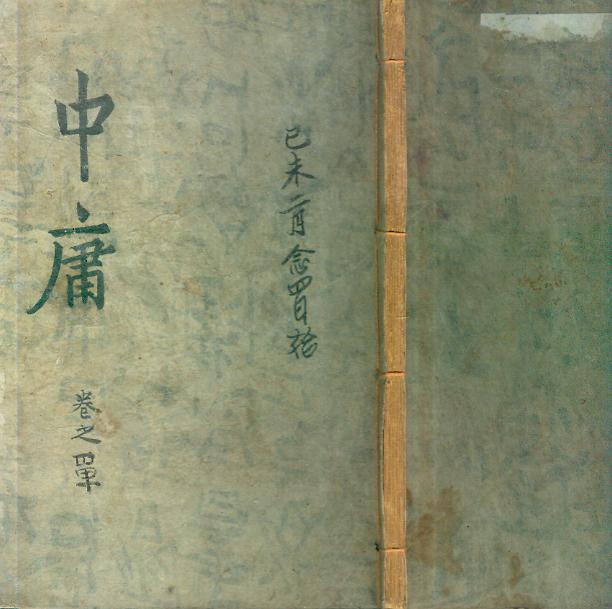 己未二月念四日
中庸
卷之單